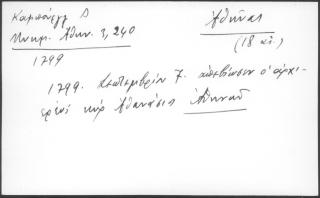 Καμπούρογλ Δ
Μνημ. Αθην. 3, 240
Ἀθῆναι
(18 αἰ.)
1799
1799. Σεπτεμβρίου 7. ἀπεβίωσεν ὁ ἀρχι-
ερεύς κύρ Ἀθανάσιος Ἀθηνῶν